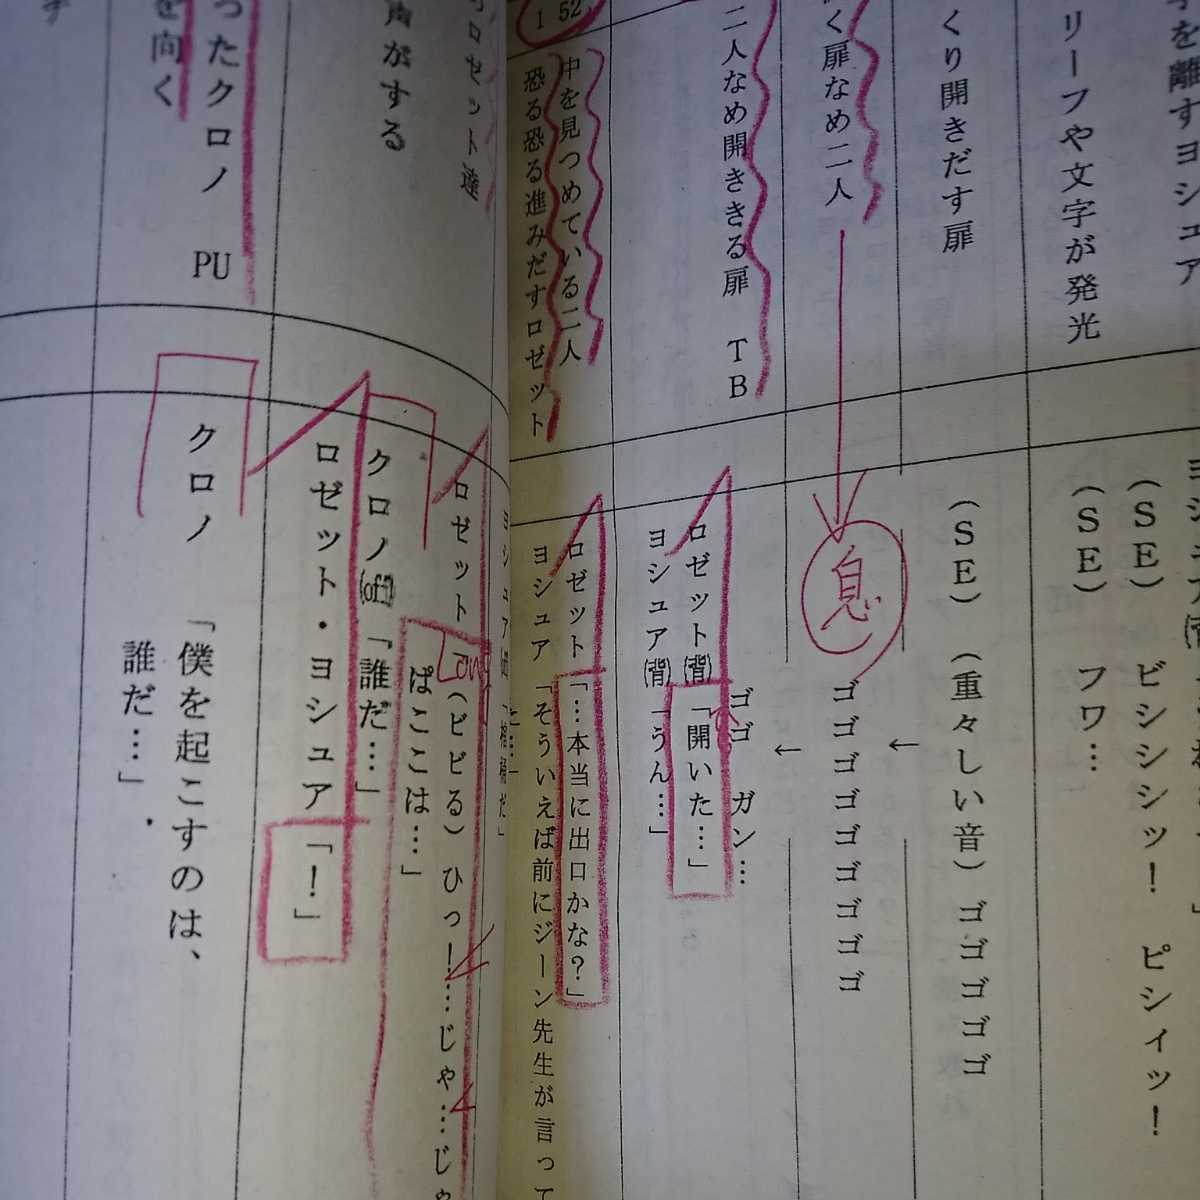 を離すヨシュア
リーフや文字が発光
くり開きだす扉
く扉なめ二人
二人なめ開ききる扉 TB
52
1
中を見つめている二人
恐る恐る進みだすロゼット
(SE) ビシシシッ! ピシィッ!
(SE) フワ…
(SE) (重々しい音) ゴゴゴゴゴ
息
ゴゴゴゴゴゴゴゴ
←
←
ゴゴ ガン…
ロゼット(背)「開いた…」
ヨシュア(背)「うん…」
ロゼット 「…本当に出口かな?」
ヨシュア 「そういえば前にジーン先生が言って
ロゼット達
声がする
ったクロノ PU
を向く
ロゼット (ビビる) ひっ!…じゃ…じゃ
ぱここは…」
クロノ(off)「誰だ…」
ロゼット・ヨシュア「!」
クロノ 「僕を起こすのは、
誰だ…」